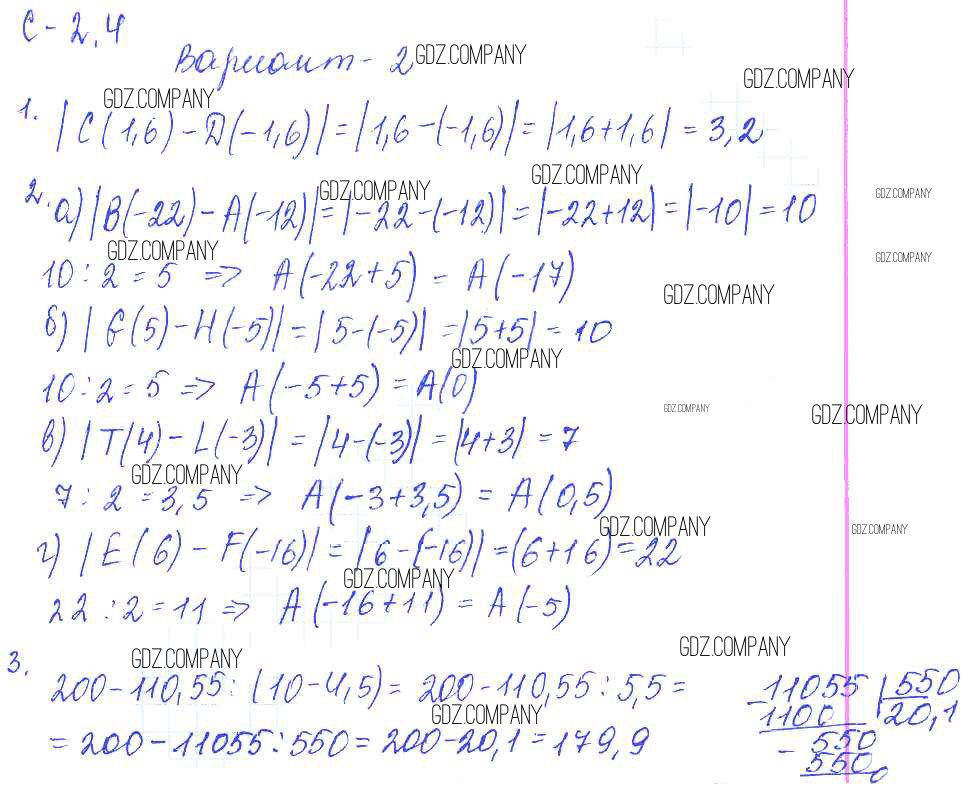 С-2,4
Вариант-2 GDZ.COMPANY
GDZ.COMPANY
GDZ.COMPANY
1. |C(1,6)-D(-1,6)|=|1,6-(-1,6)|=|1,6+1,6|=3,2
GDZ.COMPANY
GDZ.COMPANY
GDZ.COMPANY
2. а)|B(-22)-A(-12)|=|-22-(-12)|=|-22+12|=|-10|=10
GDZ.COMPANY
GDZ.COMPANY
10:2=5 => A(-22+5)=A(-17)
GDZ.COMPANY
б)|G(5)-H(-5)|=|5-(-5)|=|5+5|=10
GDZ.COMPANY
10:2=5 => A(-5+5)=A(0)
GDZ.COMPANY
GDZ.COMPANY
в)|T(4)-L(-3)|=|4-(-3)|=|4+3|=7
GDZ.COMPANY
7:2=3,5 => A(-3+3,5)=A(0,5)
GDZ.COMPANY
GDZ.COMPANY
г)|E(6)-F(-16)|=|6-(-16)|=(6+16)=22
GDZ.COMPANY
22:2=11 => A(-16+11)=A(-5)
GDZ.COMPANY
GDZ.COMPANY
3. 200-110,55:(10-4,5)=200-110,55:5,5=
GDZ.COMPANY
=200-11055:550=200-20,1=179,9
-11055|550
1100 20,1
-550
550
0